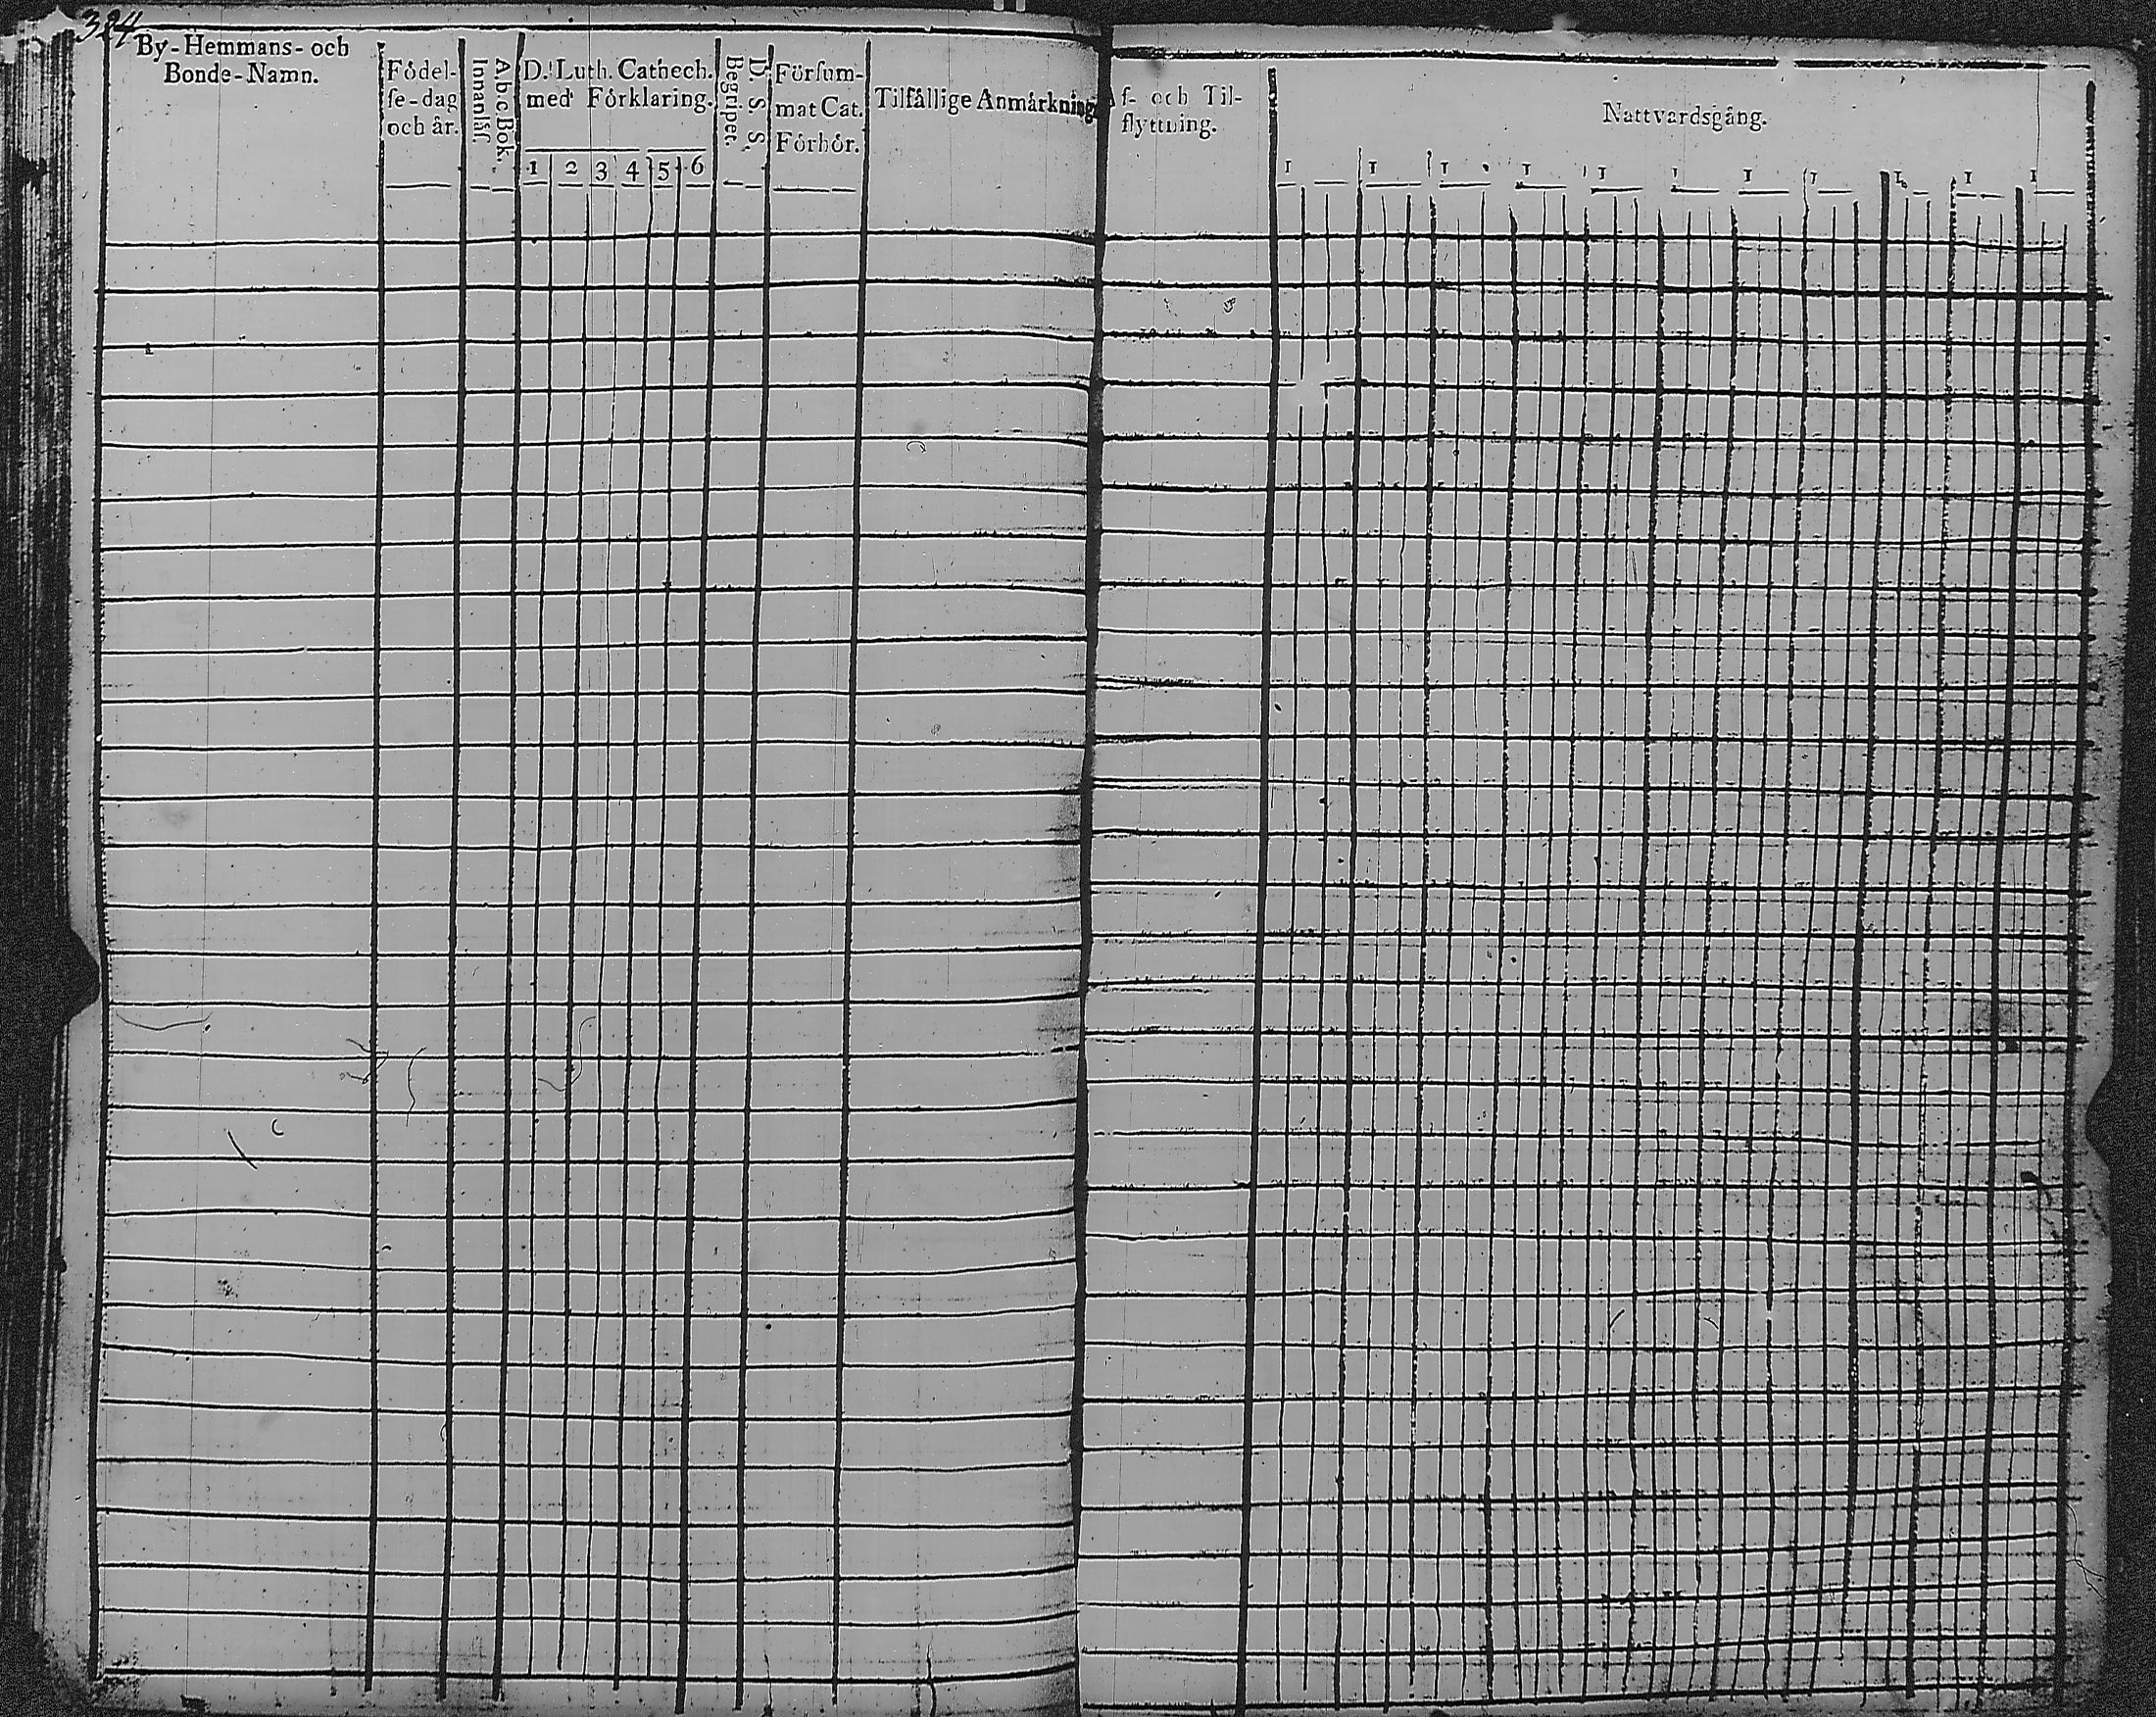 324
By-Hemmans- och
Bonde-Namn.
Födel-
se-dag
och år.
Innanläs.
A.b.c.Bok.
D. Luth. Cathech.
med Förklaring.
1 2 3 4 5 6
Begripet.
D. S. S.
Försum-
mat Cat.
Förhör.
Tilfällige Anmärkning
Af- och Til-
flyttning.
Nattvardsgång.
1 1 1 1 1 1 1 1 1 1 1